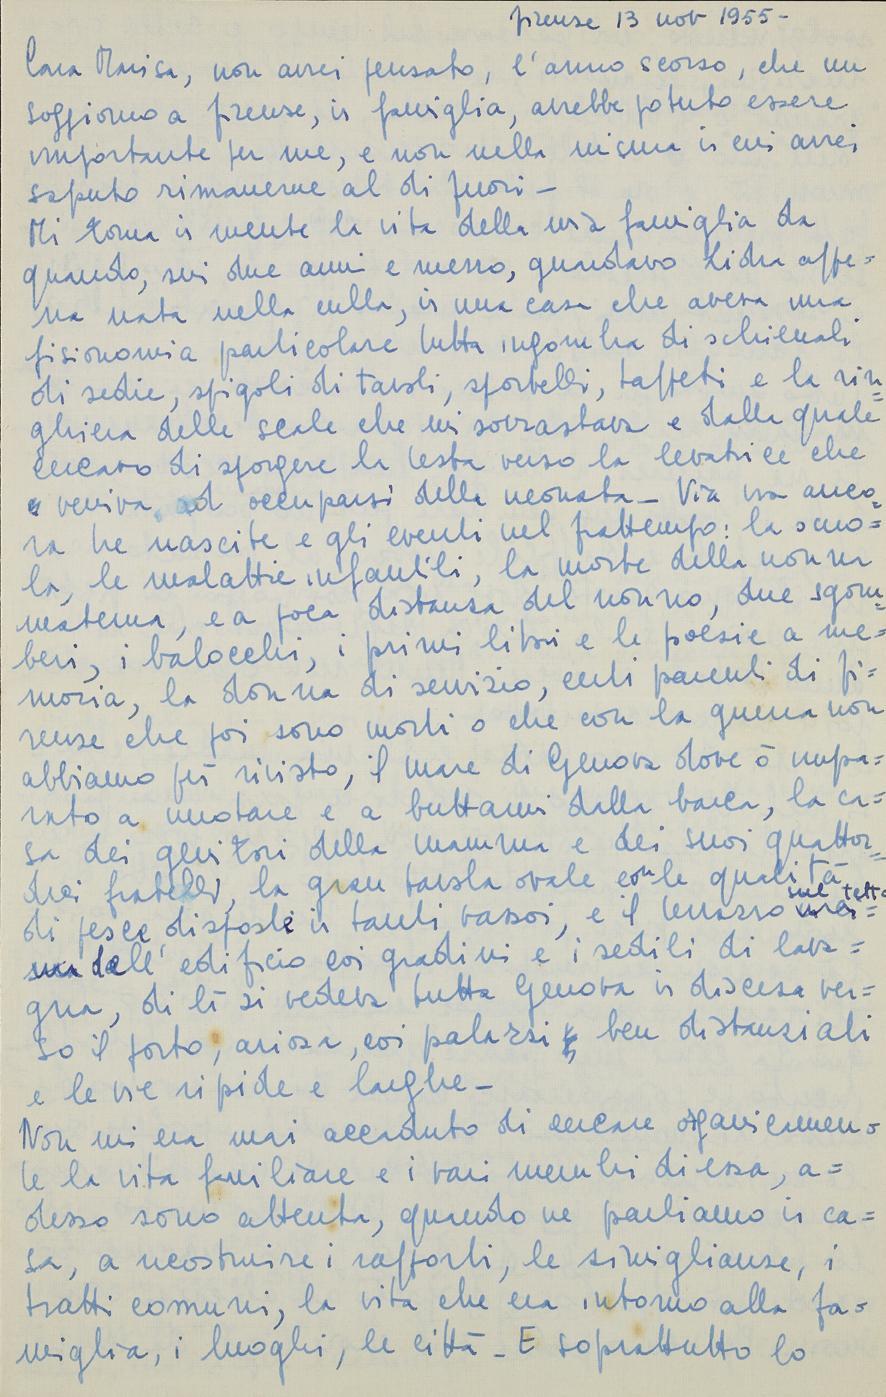 firense 13 nov 1955-
Cara Marisa, non avrei pensato, l'anno scorso, che un
soggiorno a firense, in famiglia, avrebbe potuto essere
importante per me, e non nella misura in cui avrei
saputo rimanerne al di fuori -
Mi torna in mente la vita della mia famiglia da
quando, sui due anni e messo, guardavo Lidia appe=
na nata nella culla, in una casa che aveva una
fisionomia particolare tutta ingombra di schienali
di sedie, spigoli di tavoli, sportelli, tappeti e la rin=
ghiera delle scale che mi sovrastava e dalla quale
cercavo di sporgere la testa verso la levatrice che
veniva ad occuparsi della neonata - Via via anco=
ra tre nascite e gli eventi nel frattempo: la scuo=
la, le malattie infantili, la morte della nonna
materna, e a poca distanza del nonno, due sgom=
beri, i balocchi, i primi libri e le poesie a me=
moria, la donna di servizio, certi parenti di fi=
rense che poi sono morti o che con la guerra non
abbiamo più rivisto, il mare di Genova dove ò impa=
rato a nuotare e a buttarmi dalla barca, la ca=
sa dei genitori della mamma e dei suoi quattor=
dici fratelli, la gran tavola ovale con le qualità
di pesce disposte in tanti vassoi, e il terrazzo sul tetto
dell'edificio coi gradini e i sedili di lava=
gna, di lì si vedeva tutta Genova in discesa ver=
so il porto, ariosa, coi palazzi ben distanziati
e le vie ripide e larghe -
Non mi era mai accaduto di cercare organicamen=
te la vita familiare e i vari membri di essa, a=
desso sono attenta, quando ne parliamo in ca=
sa, a ricostruire i rapporti, le simiglianse, i
tratti comuni, la vita che era intorno alla fa=
miglia, i luoghi, le città - E soprattutto lo